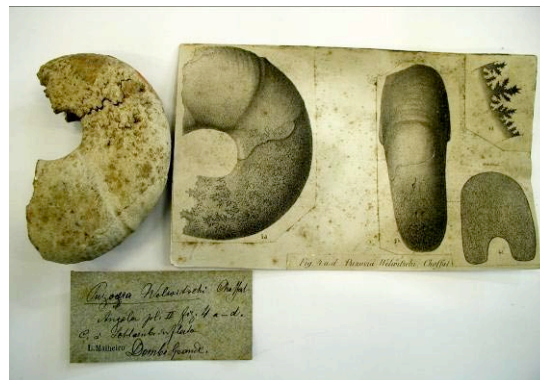 Fig. 4 a-d. Puzosia Welwitschi, Choffat.
Puzosia Welwitschi Choffat
Angola pl. II fig. 4 a-d.
C. à Schloenb. inflata
L. Malheiro Dombe Grande.